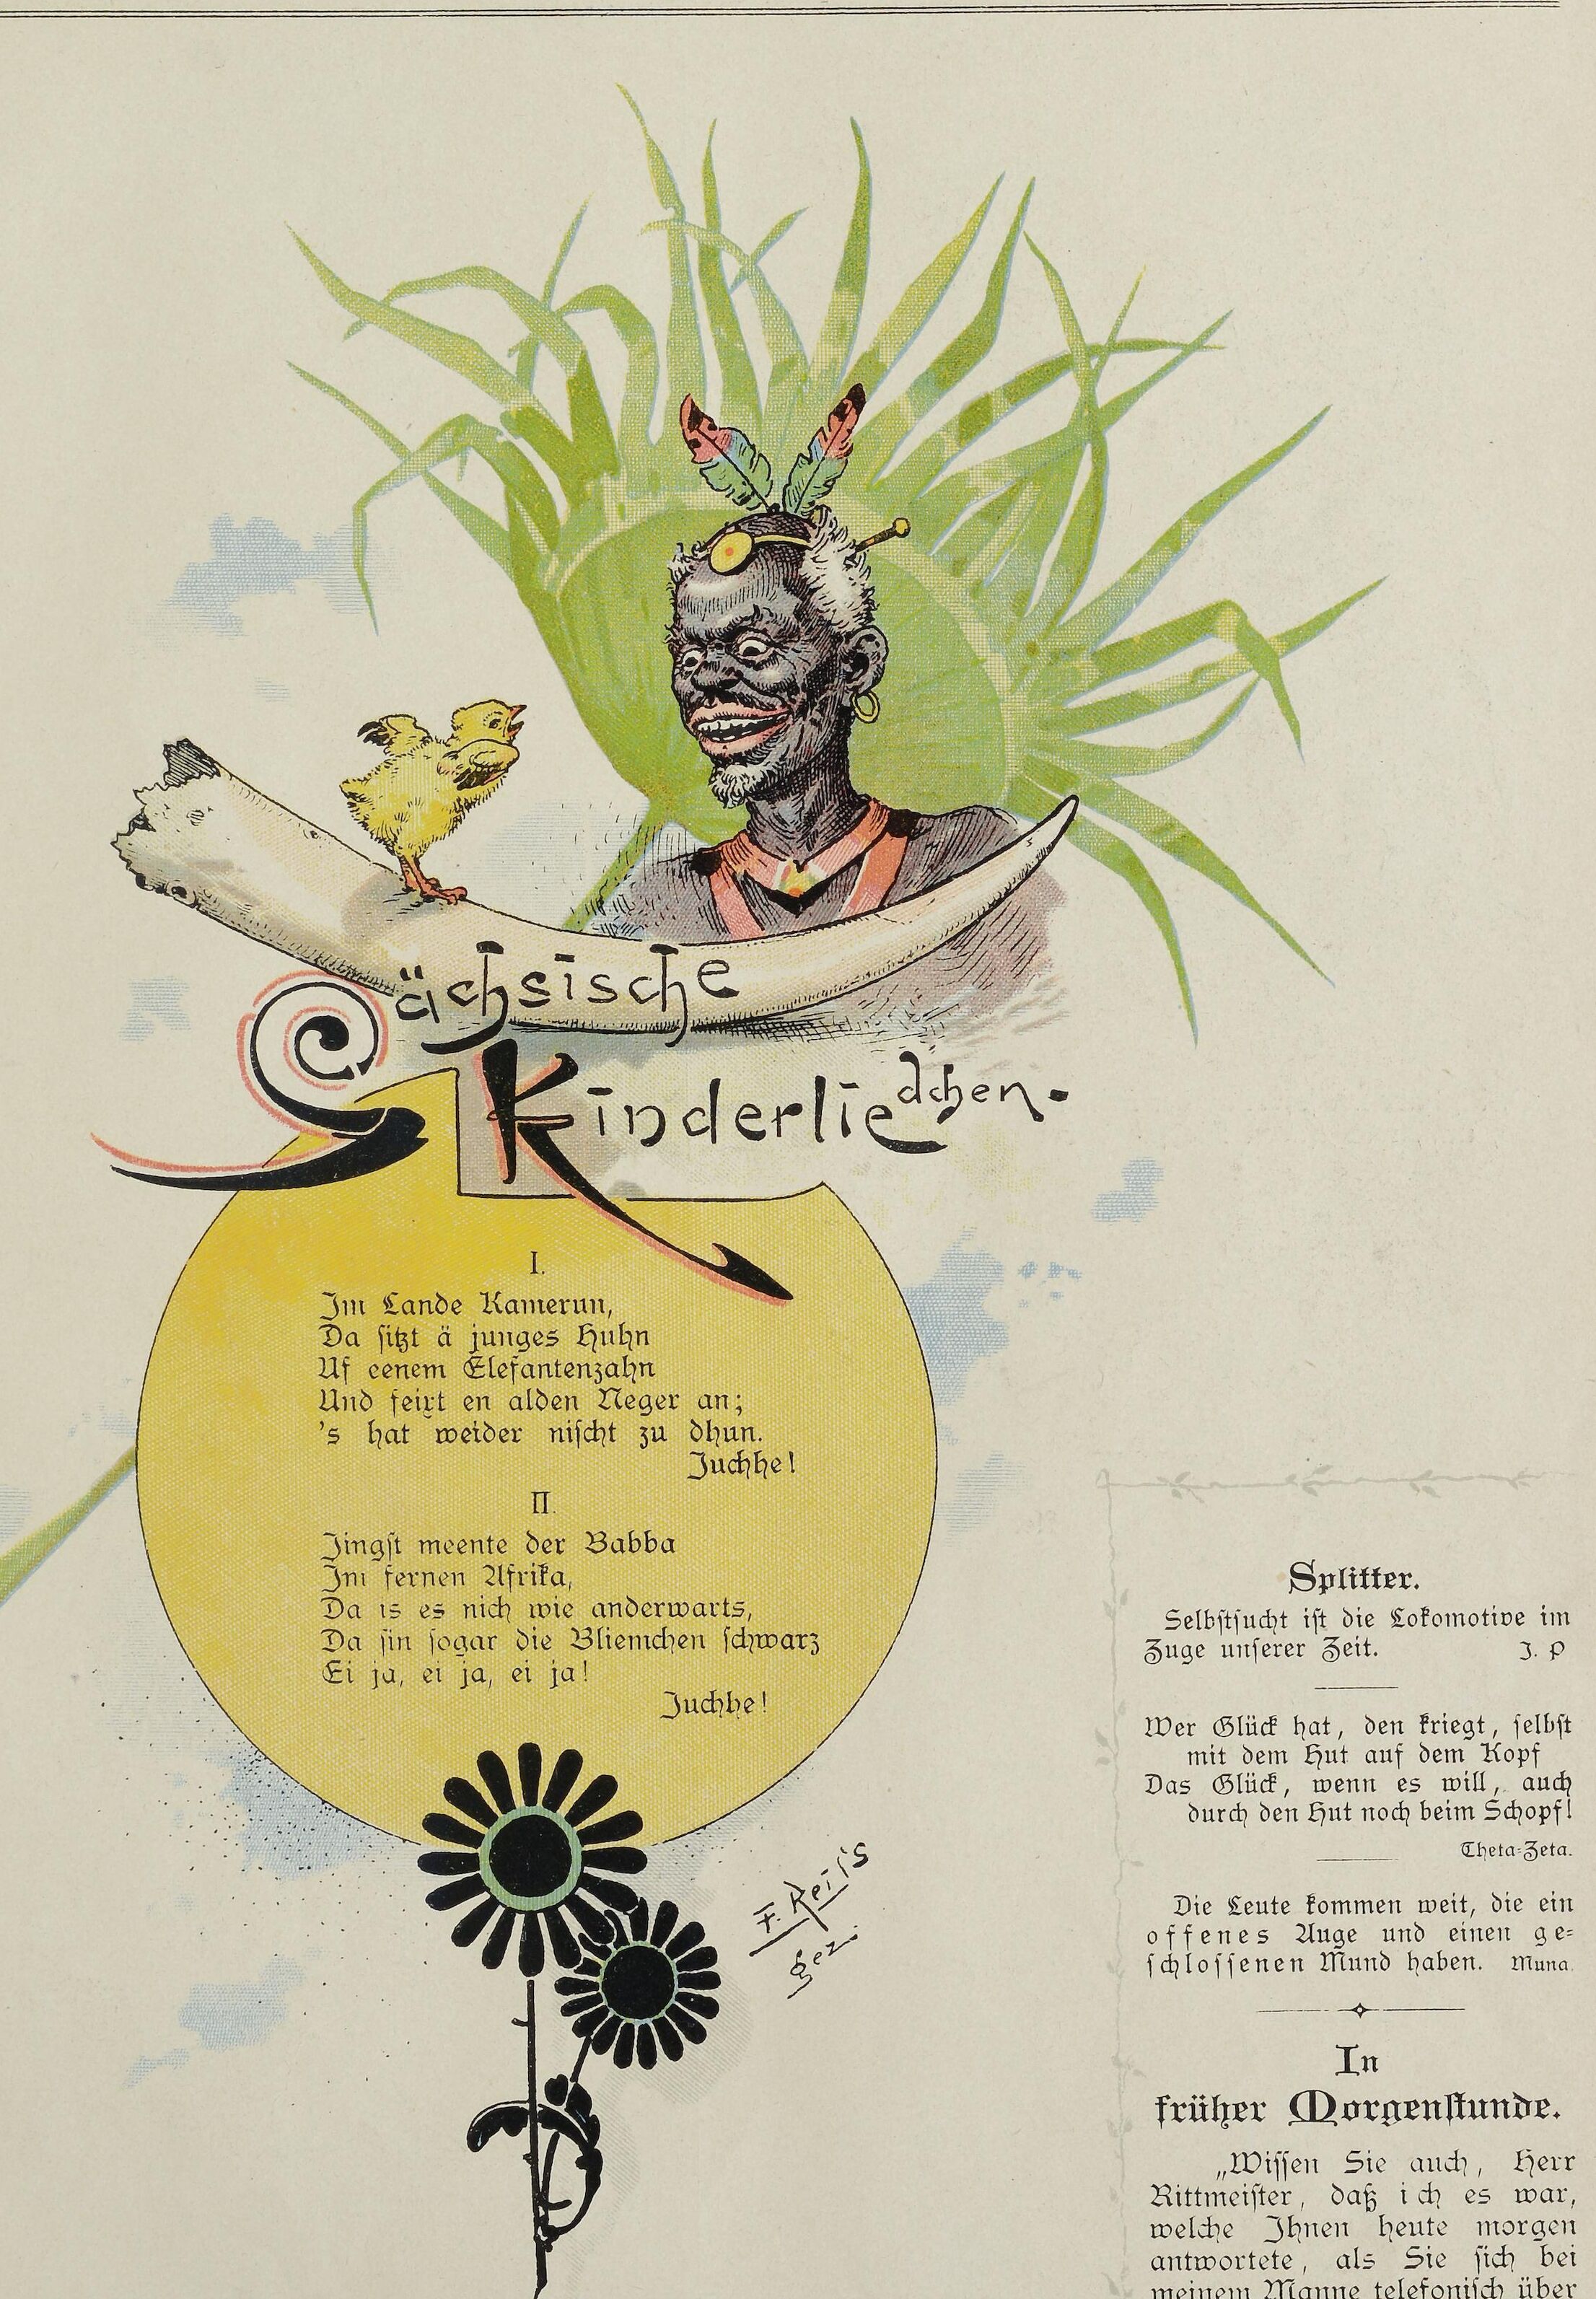 Sächsische
Kinderliedchen.
I.
Im Lande Kamerun,
Da sitzt ä junges Huhn
Uf eenem Elefantenzahn
Und feixt en alden Neger an;
's hat weider nischt zu dhun.
Juchhe!
II.
Jingst meente der Babba
Im fernen Afrika,
Da is es nich wie anderwarts,
Da sin sogar die Bliemchen schwarz
Ei ja, ei ja, ei ja!
Juchhe!
F. Reiss
gez.
Splitter.
Selbstsucht ist die Lokomotive im
Zuge unserer Zeit. J. P
Wer Glück hat, den kriegt, selbst
mit dem Hut auf dem Kopf
Das Glück, wenn es will, auch
durch den Hut noch beim Schopf!
Theta-Zeta.
Die Leute kommen weit, die ein
offenes Auge und einen ge-
schlossenen Mund haben. Muna.
In
früher Morgenstunde.
„Wissen Sie auch, Herr
Rittmeister, daß ich es war,
welche Ihnen heute morgen
antwortete, als Sie sich bei
meinem Manne telefonisch über